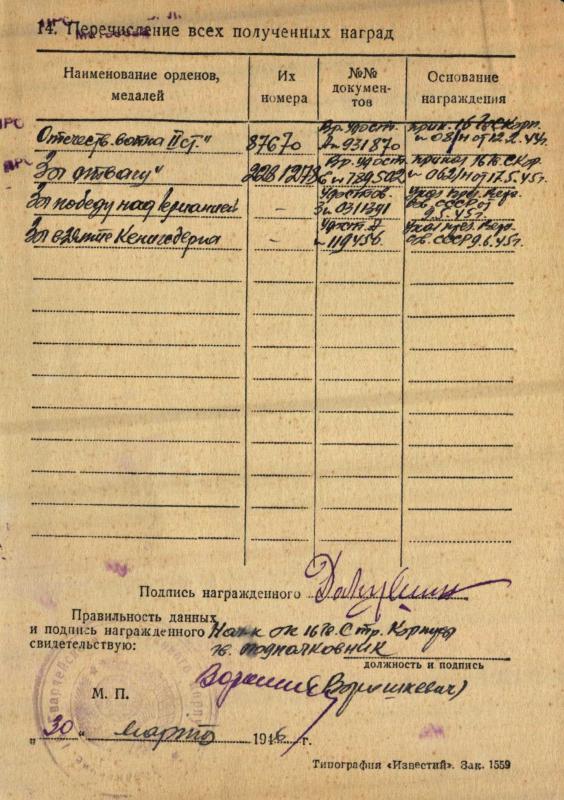 14. Перечисление всех полученных наград
Наименование орденов, медалей
Их номера
№№ документов
Основание награждения
Отечеств. война II ст."
87670
Вр. удост. № 931870
прик. 16 Гв. С. Корп. № 08/н от 12.2.44г.
За отвагу"
2281278
Вр. удост. Б № 789502
приказ 16 Гв. С. Кор. № 062/н от 17.5.45г.
За победу над Германией
-
Удостов. № 031391
Указ През. Верх. Сов. СССР от 9.5.45г.
За взятие Кенигсберга
-
Удост. А № 119456
Указ През. Верх. Сов. СССР 9.6.45г.
Подпись награжденного
Правильность данных
и подпись награжденного
свидетельствую:
Нач-к ок 16 Гв. Стр. Корпуса
гв. подполковник
должность и подпись
(Ворошкевич)
М. П.
„30" марта 1946 г.
Типография «Известий». Зак. 1559